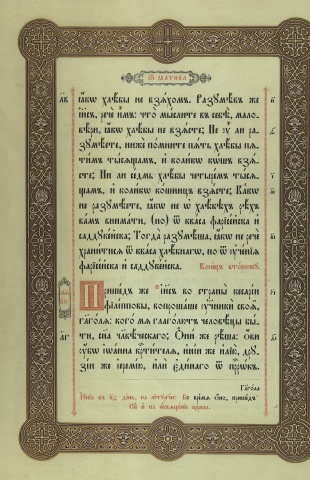 ѿ маѳеа
ꙗ҆́кѡ хлѣ́бы не взѧ́хомъ. Разꙋмѣ́въ же
і҆и҃съ, речѐ и҆̀мъ: что̀ мы́слите въ себѣ̀, мало-
вѣ́ри, ꙗ҆́кѡ хлѣ́бы не взѧ́сте; Не ᲂу҆̀ ли ра-
зꙋмѣ́ете, нижѐ по́мните пѧ́ть хлѣ́бы пѧ-
ти́мъ ты́сѧщамъ, и҆ коли́кѡ кѡ́шъ взѧ́-
сте; Ни ли̑ се́дмь хлѣ́бы четы́ремъ ты́сѧ-
щамъ, и҆ коли́кѡ ко́шницъ взѧ́сте; Ка́кѡ
не разꙋмѣ́ете, ꙗ҆́кѡ не ѡ҆ хлѣ́бѣхъ рѣ́хъ
ва́мъ внима́ти, (но) ѿ ква́са фарїсе́йска и҆
саддꙋке́йска; Тогда̀ разꙋмѣ́ша, ꙗ҆́кѡ не речѐ
храни́тисѧ ѿ ква́са хлѣ́бнагѡ, но ѿ ᲂу҆че́нїѧ
фарїсе́йска и҆ саддꙋке́йска. Коне́цъ вто́рникꙋ.
Прише́дъ же і҆и҃съ во страны̑ кесарі́и
фїлі́пповы, вопроша́ше ᲂу҆ченикѝ своѧ̑,
гл҃голѧ: кого́ мѧ глаго́лютъ человѣ́цы бы́-
ти, сн҃а чл҃вѣ́ческаго; Ѻ҆ни́ же рѣ́ша: ѻ҆́ви
ᲂу҆́бѡ і҆ѡа́нна крⷭ҇ти́телѧ, и҆ні́и же и҆лїю̀, дрꙋ-
зі́и же і҆еремі́ю, и҆лѝ є҆ди́наго ѿ прⷪ҇рѡ́къ.
Гл҃гола
Во вре́мѧ ѻ҆́но, прише́дъ